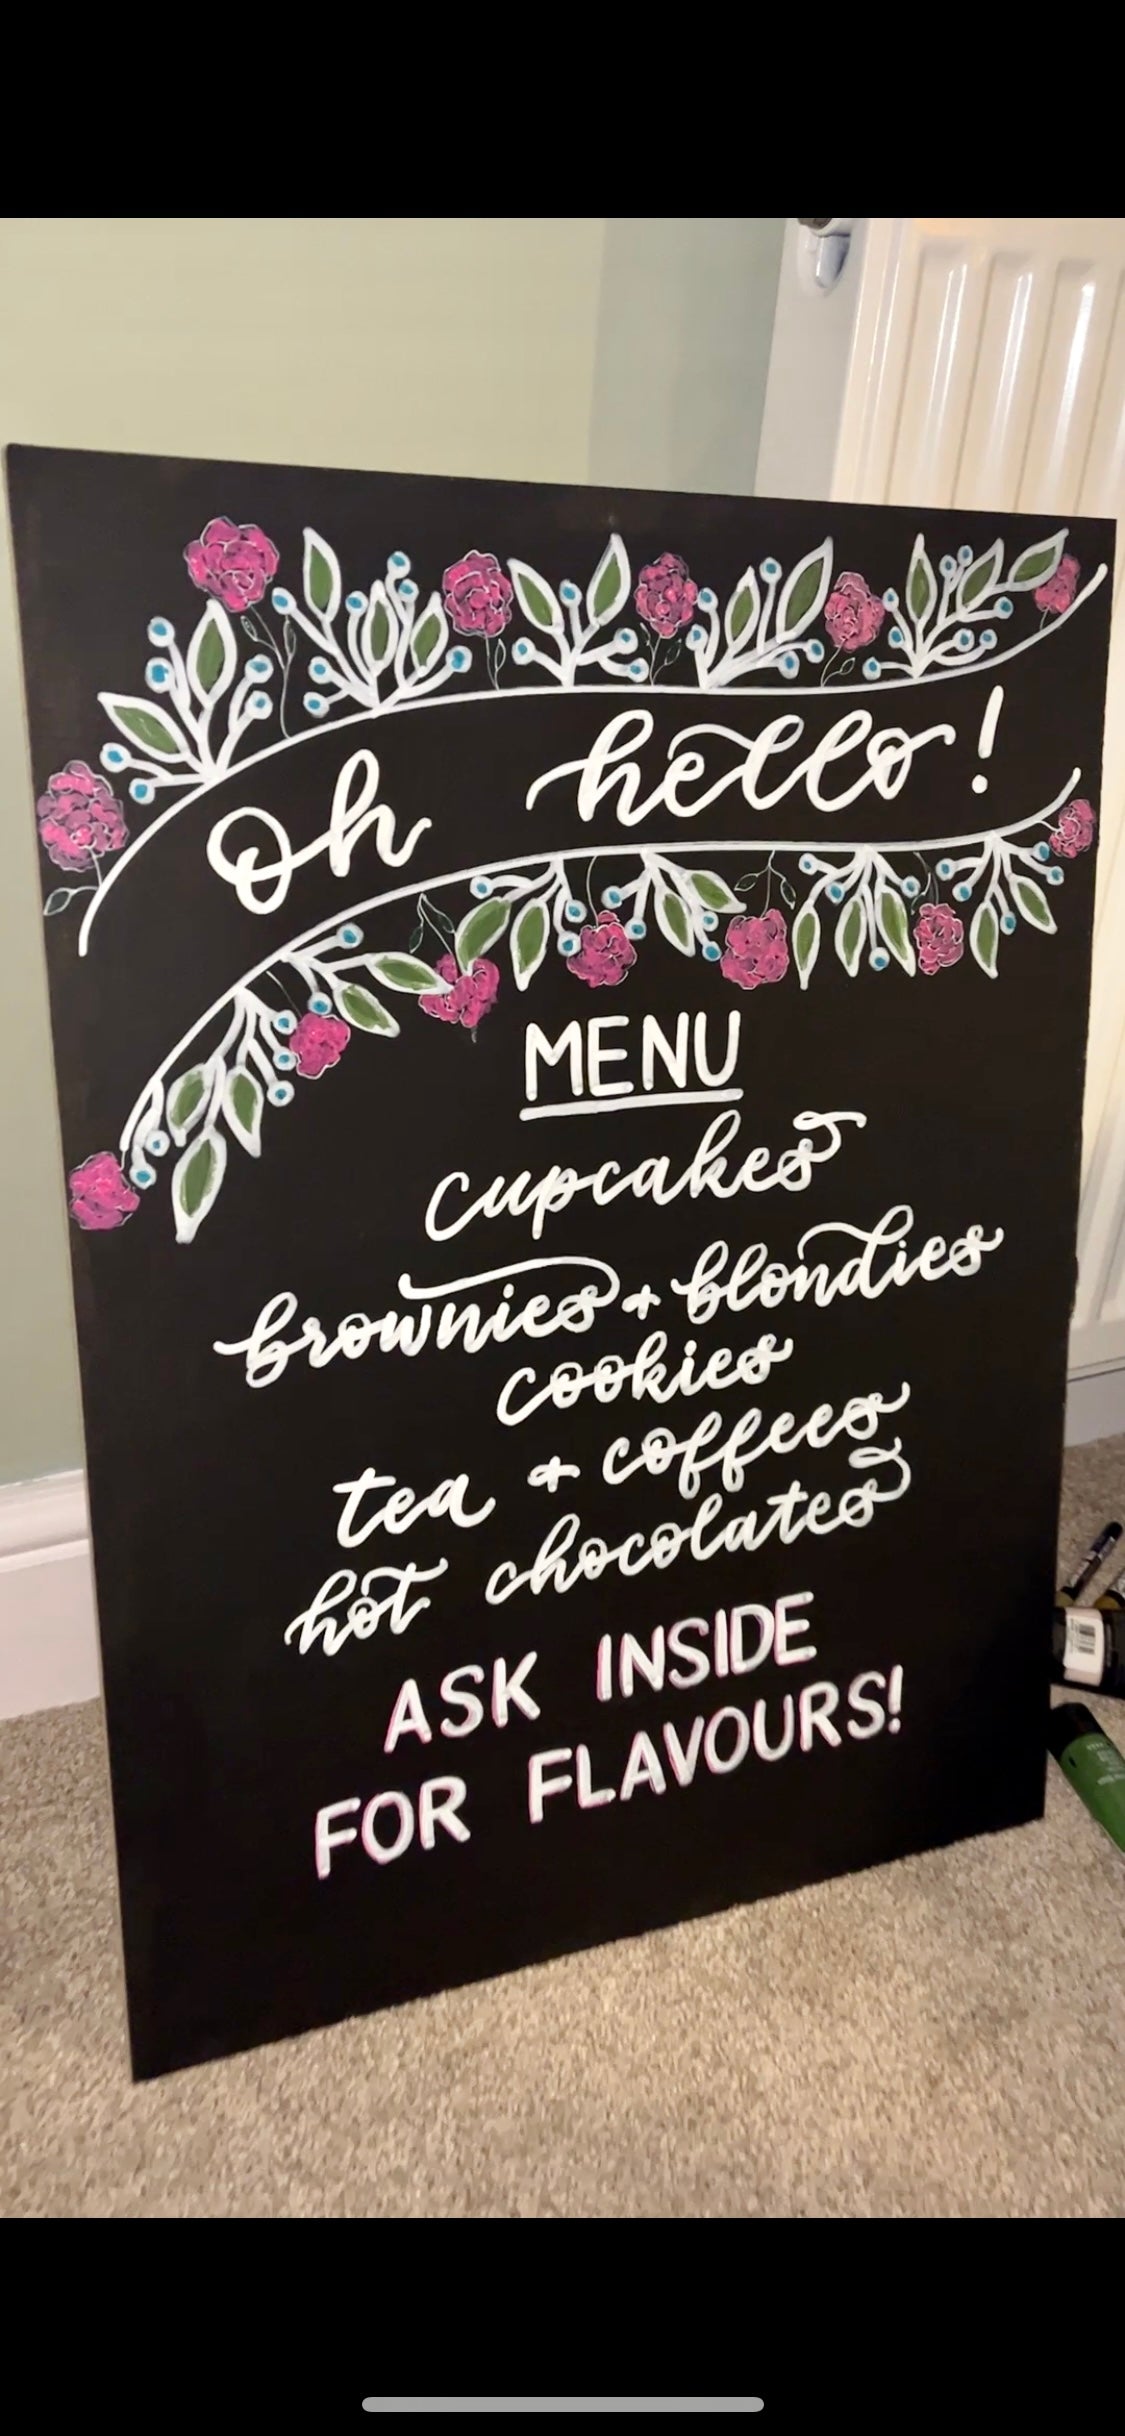 oh hello!
MENU
cupcakes
brownies + blondies
cookies
tea + coffees
hot chocolates
ASK INSIDE
FOR FLAVOURS!